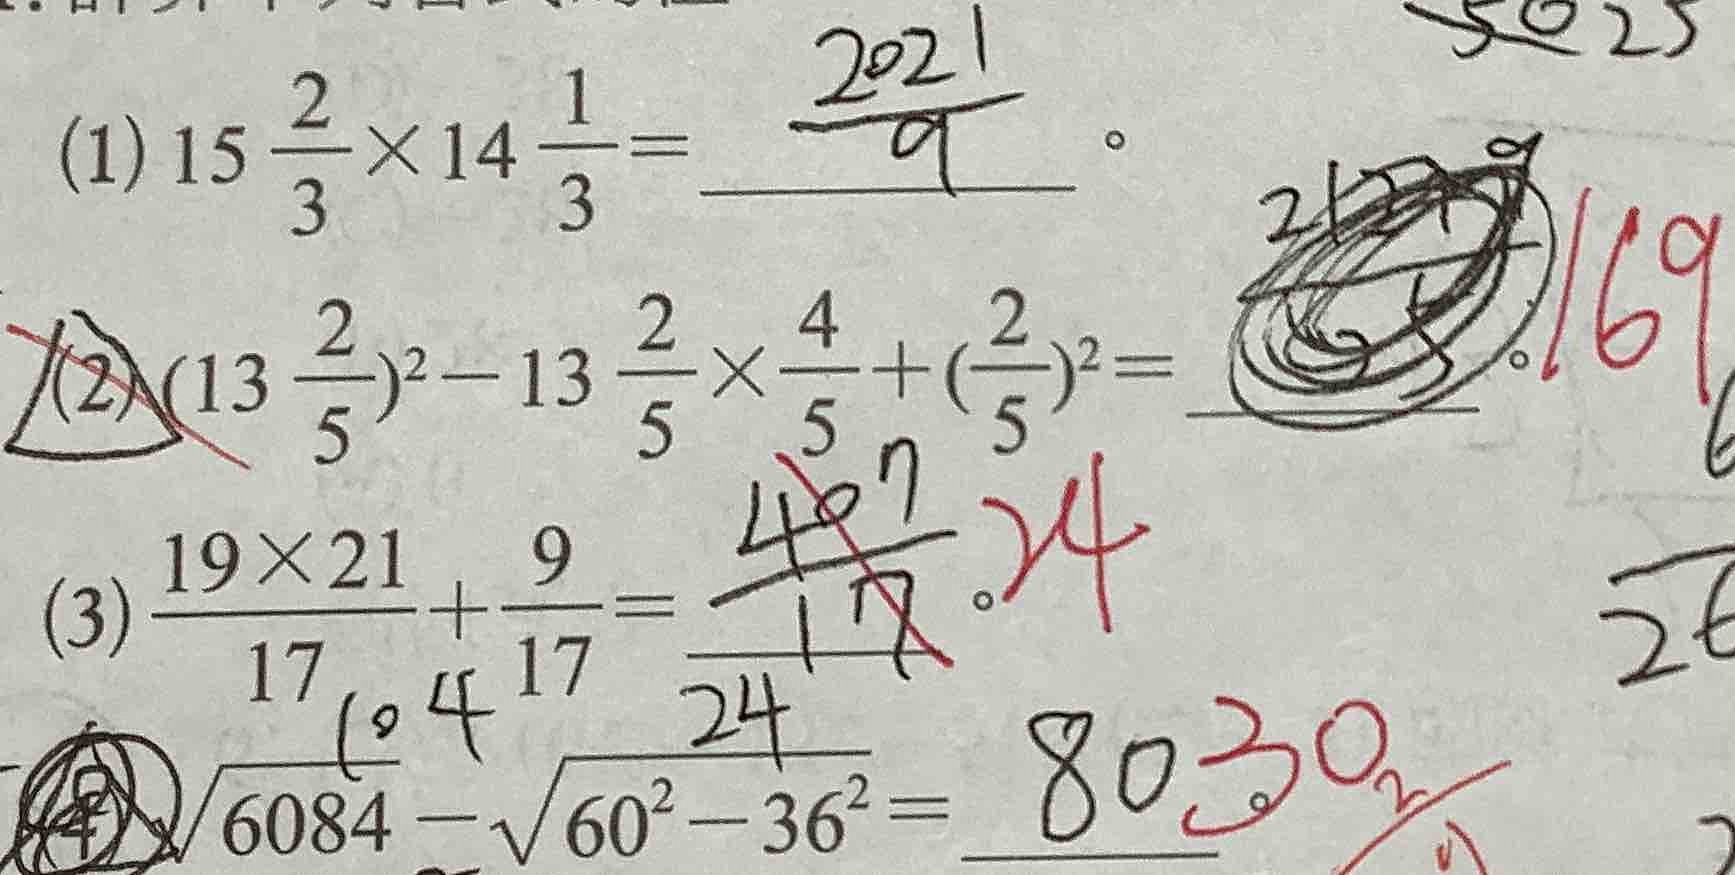 5025
(1) 15 2/3 × 14 1/3 = 2021/9 。
(2) (13 2/5)² − 13 2/5 × 4/5 + (2/5)² = 。 169
(3) 19×21/17 + 9/17 = 407/17 。 24
104 24
√6084 − √60²−36² = 80 。 30